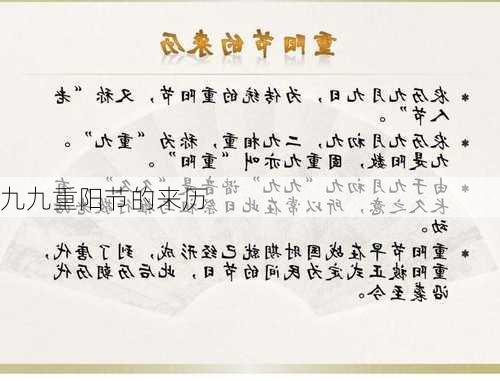 重阳节的来历
* 农历九月九日，为传统的重阳节，又称“老
人节”。
* 农历九月初九，二九相重，称为“重九”。
九是阳数，固重九亦叫“重阳”。
* 由于九月初九“九九”谐音是“久久”，有
长久之意，所以常在此日祭
动。
* 重阳节早在战国时期就已经形成，到了唐代，
重阳被正式定为民间的节日，此后历朝历代
沿袭至今。
九九重阳节的来历